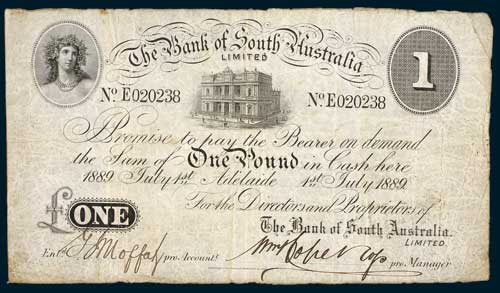 The Bank of South Australia
LIMITED
1
No. E020238 No. E020238
Promise to pay the Bearer on demand
the Sum of One Pound in Cash here
1889 July 1st Adelaide 1st July 1889
For the Directors and Proprietors of
The Bank of South Australia.
LIMITED.
£ONE
Entd. pro. Accountt. pro. Manager